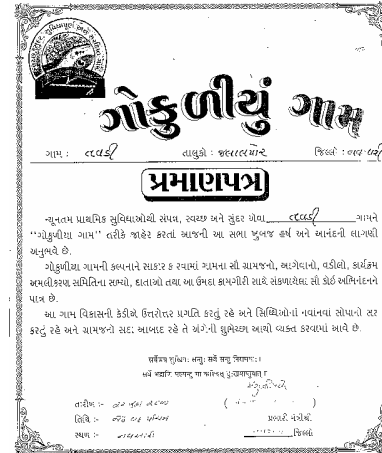 ગોકુળીયું ગામ
ગામ : તવડી તાલુકો : જલાલપોર જિલ્લો : નવસારી
પ્રમાણપત્ર
ન્યૂનતમ પ્રાથમિક સુવિધાઓથી સંપન્ન, સ્વચ્છ અને સુંદર એવા તવડી ગામને
"ગોકુળીયા ગામ" તરીકે જાહેર કરતાં આજની આ સભા ખુબજ હર્ષ અને આનંદની લાગણી
અનુભવે છે.
ગોકુળીયા ગામની કલ્પનાને સાકાર કરવામાં ગામના સૌ ગ્રામજનો, આગેવાનો, વડીલો, કાર્યક્રમ
અમલીકરણ સમિતિના સભ્યો, દાતાઓ તથા આ ઉમદા કામગીરી સાથે સંકળાયેલા સૌ કોઈ અભિનંદનને
પાત્ર છે.
આ ગામ વિકાસની કેડીએ ઉત્તરોત્તર પ્રગતિ કરતું રહે અને સિધ્ધિઓનાં નવાંનવાં સોપાનો સર
કરતું રહે અને ગ્રામજનો સદા આબાદ રહે તે અંગેની શુભેચ્છા આથી વ્યક્ત કરવામાં આવે છે.
સર્વેત્ર સુખિનઃ સન્તુ સર્વે સન્તુ નિરામયાઃ ।
સર્વે ભદ્રાણિ પશ્યન્તુ મા કશ્ચિત્ દુઃખમાપ્નુયાત્ ॥
તારીખ :-
તિથિ :- પ્રભારી મંત્રીશ્રી
સ્થળ :- નવસારી જિલ્લો